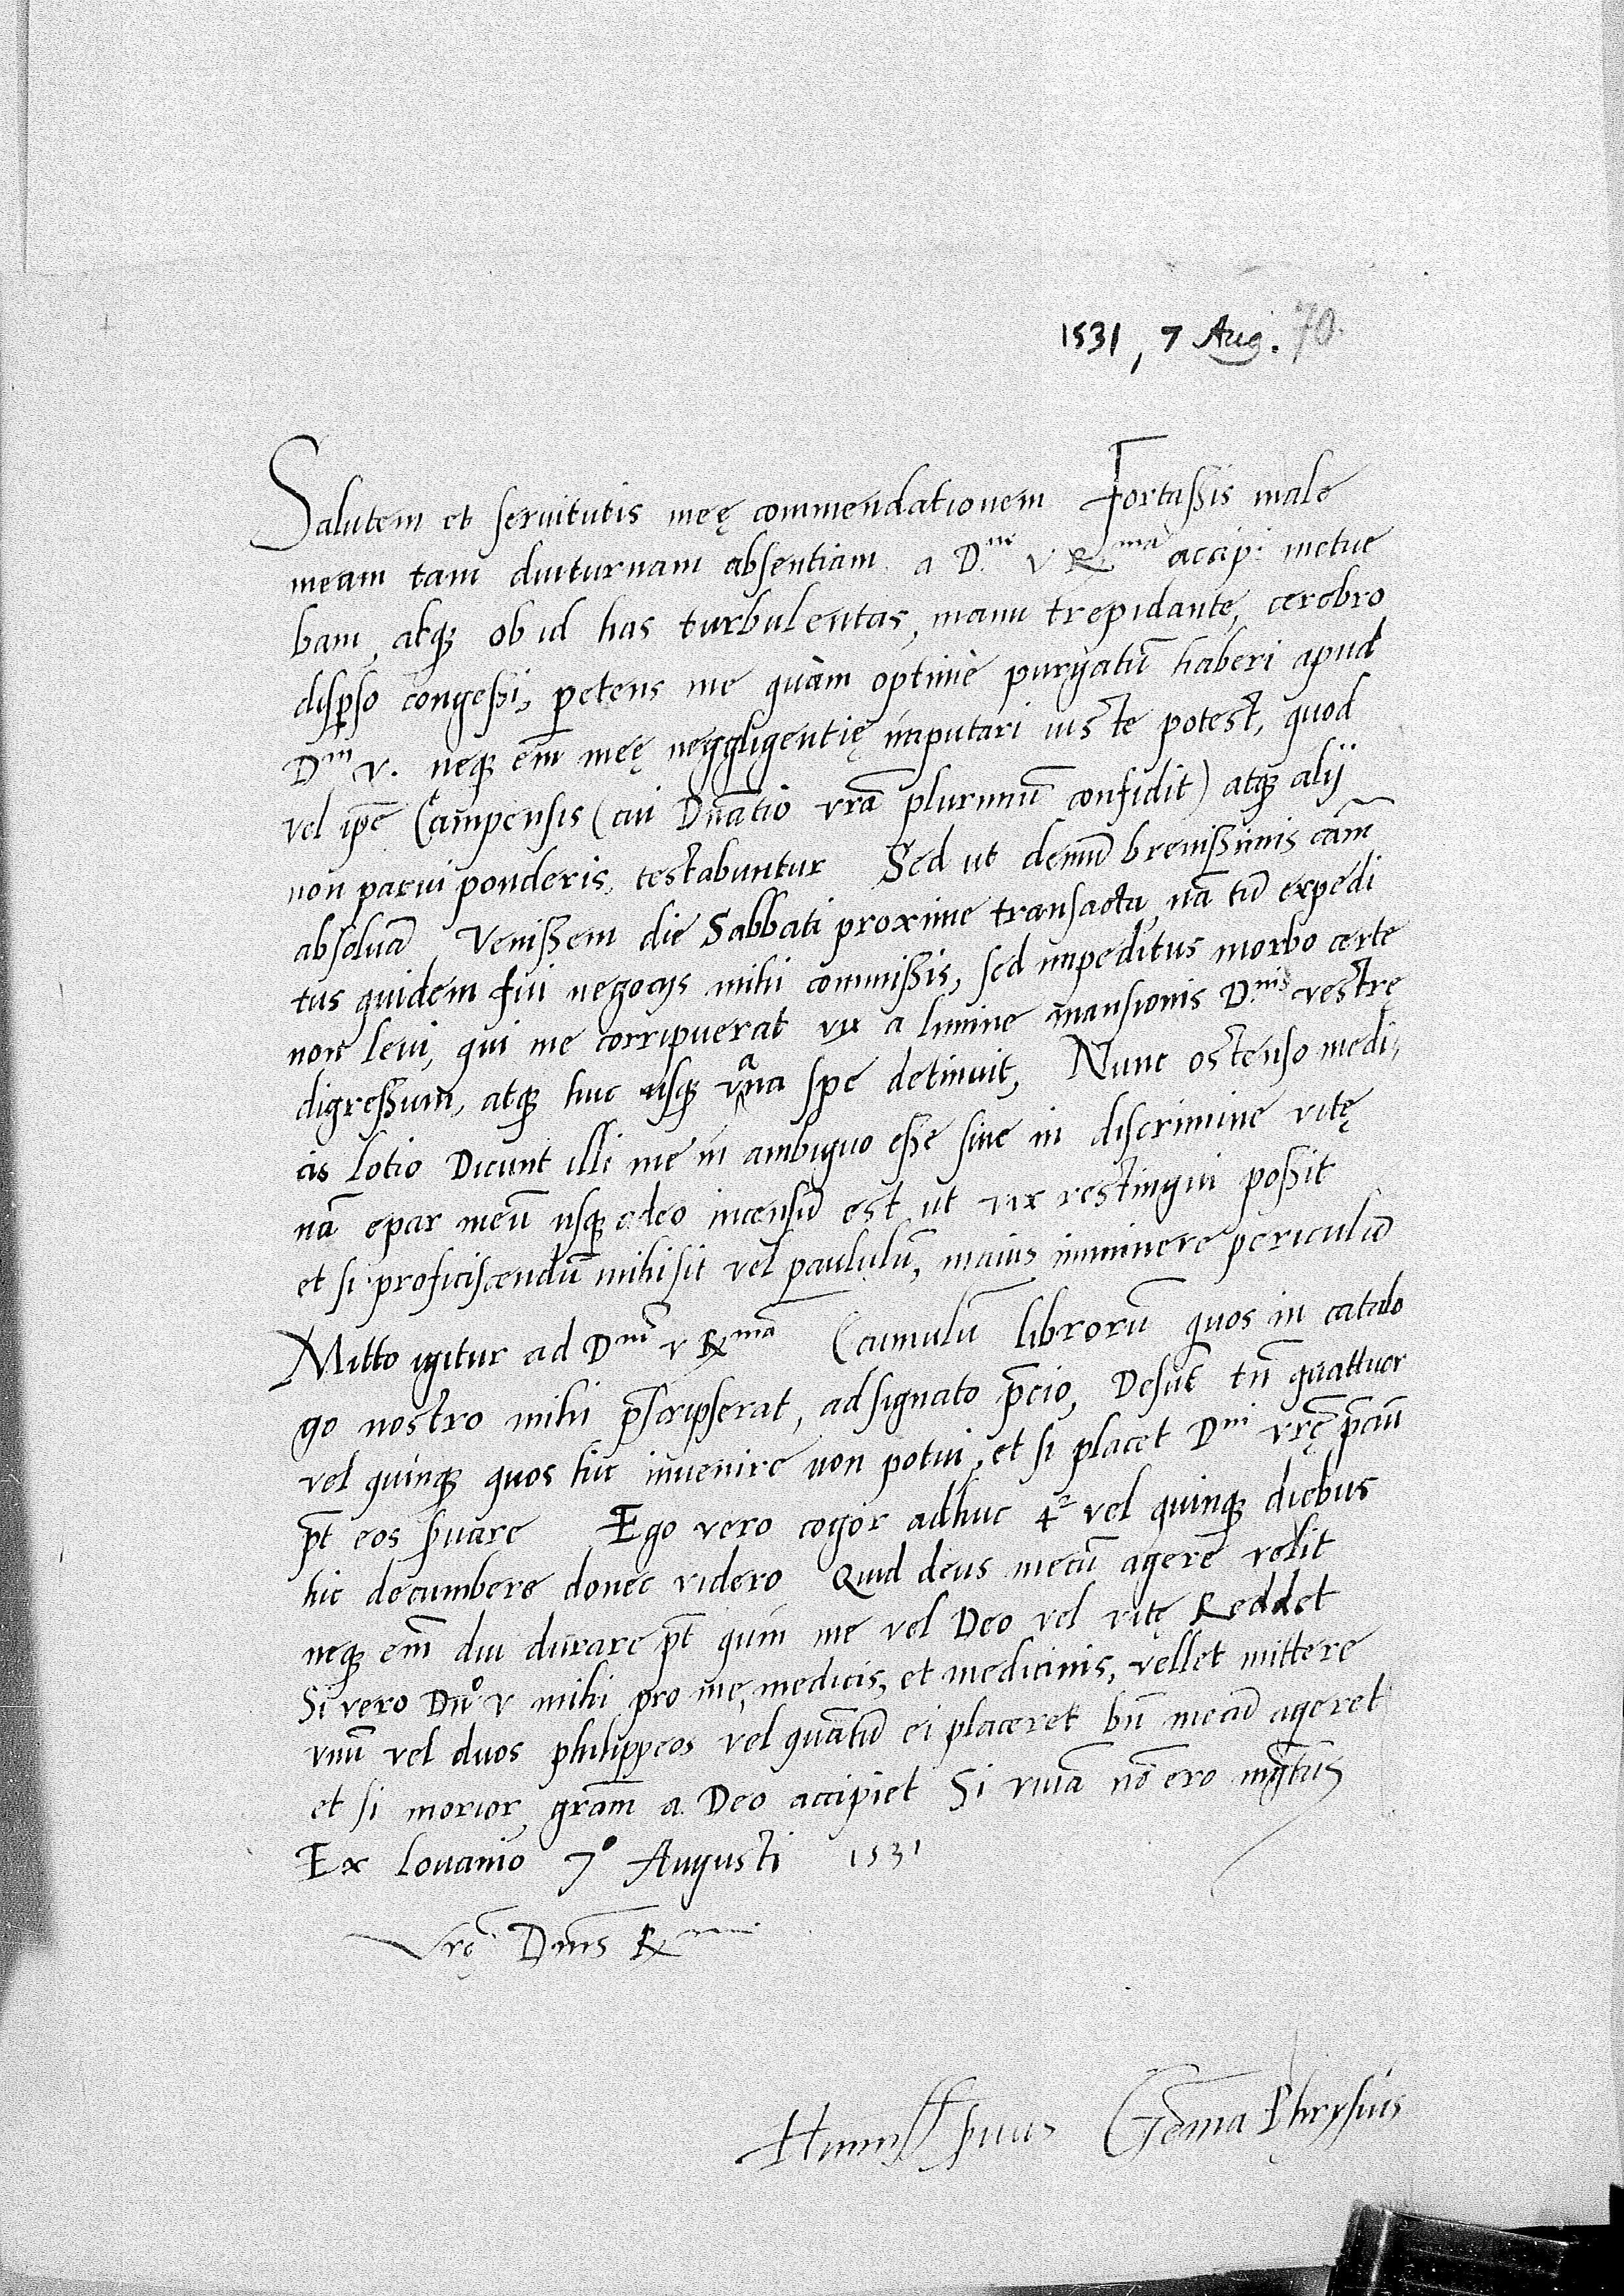 1531, 7 Aug. 70.
Salutem et seruitutis meę commendationem Fortassis male
meam tam diuturnam absentiam a D.ne V R.ma accipi metue
bam, atqꝫ ob id has turbulentas, manu trepidante, cerebro
disp̱so congessi, petens me quàm optimè purgatū haberi apud
Dm v. neqꝫ em̄ meę neggligentię imputari iuste potest, quod
vel ip̄e Campensis (cui Dn̄atio vr̄a plurimū confidit) atqꝫ alij
non parui ponderis, testabuntur Sed ut demū breuissimis cām
absoluā Venissem die Sabbati proxime transacta, nā tū expedi
tus quidem fui negocijs mihi commissis, sed impeditus morbo certe
non leui, qui me corripuerat vix a limine mansionis D.nis vestrę
digressum, atqꝫ huc usqꝫ vana spe detinuit, Nunc ostenso medi,
cis lotio Dicunt illi me in ambiguo esse siue in discrimine vitę
nā epar meū usqꝫ adeo incensū est ut vix restingui possit
et si proficiscendū mihi sit vel paululū, maius imminere periculū
Mitto igitur ad Dnē v Rma Cumulū librorū quos in catalo
go nostro mihi p̄scripserat, adsignato p̄cio, Desūt tn̄ quattuor
vel quinqꝫ quos hic inuenire non potui, et si placet Dni vrę̄ p̄ciū
pt̄ eos s̱uare Ego vero cogor adhuc 4or vel quinqꝫ diebus
hic decumbere donec videro Quid deus mecū agere velit
neqꝫ em̄ diu durare pt̄ quin me vel Deo vel vitę Reddet
Si vero Dn̄o v mihi pro me, medicis, et medicinis, vellet mittere
vnū vel duos philippeos vel quātū ei placeret bn̄ mecū ageret
et si morior, grām a Deo accipiet Si viuā nō ero ingrātus
Ex Louanio 7o Augusti 1531
Vrę̄ Dnis Rme
Humill s̱uus Gēma Phrysius